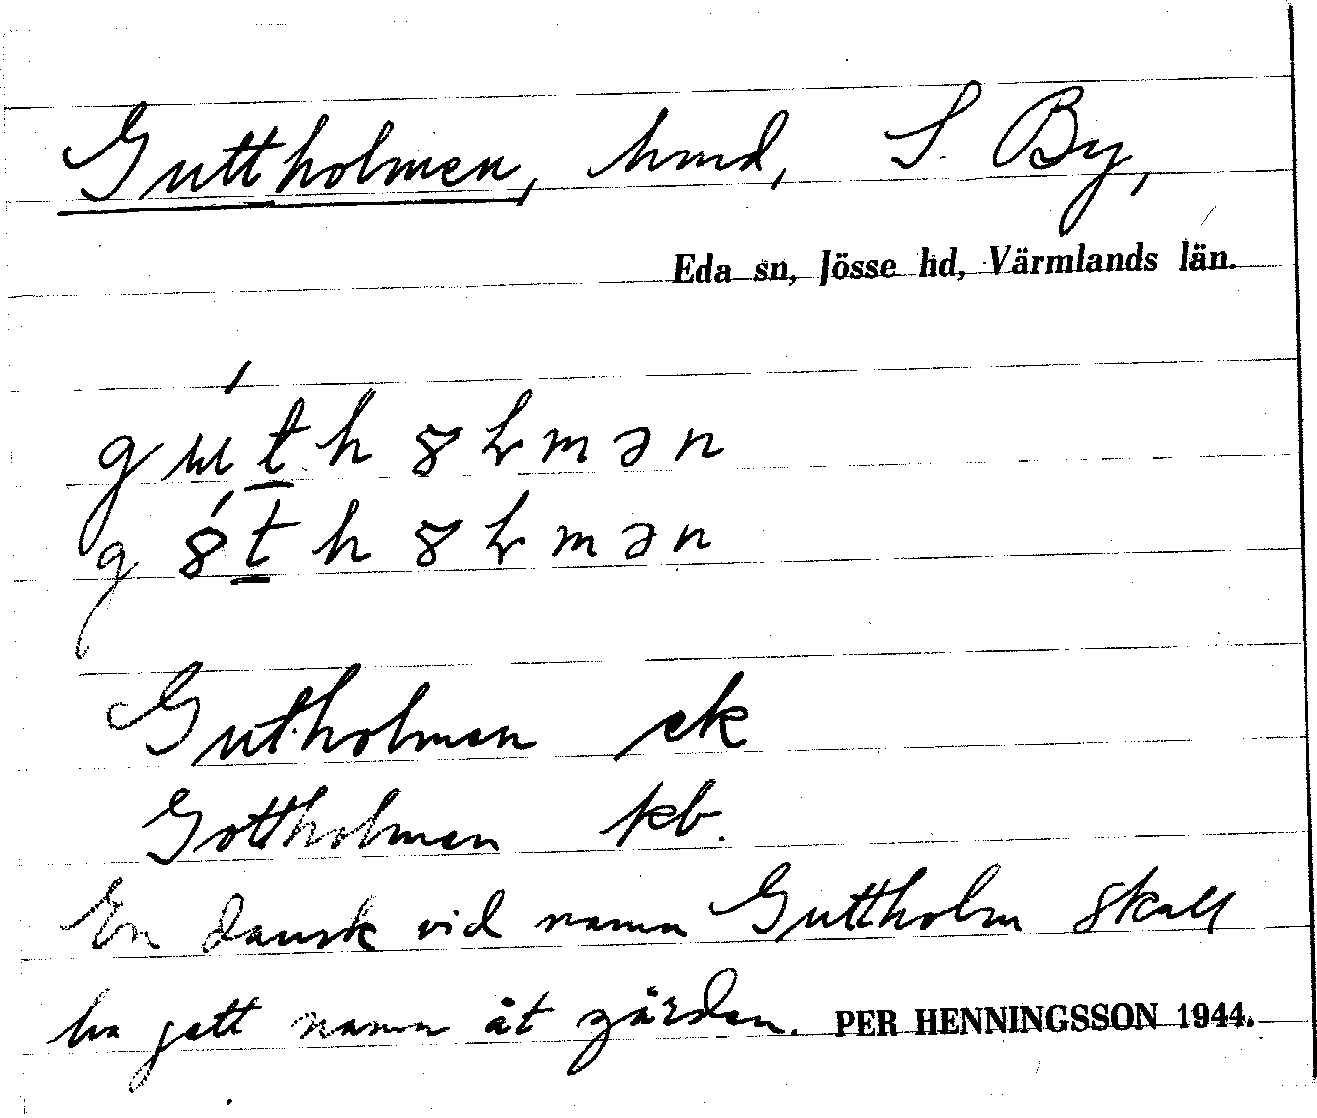 Guttholmen, hmd, S. By,
Eda sn, Jösse hd, Värmlands län.
Gutholmen ek
Gottholmen kb.
En dansk vid namn Guttholm skall
ha gett namn åt gården. PER HENNINGSSON 1944.